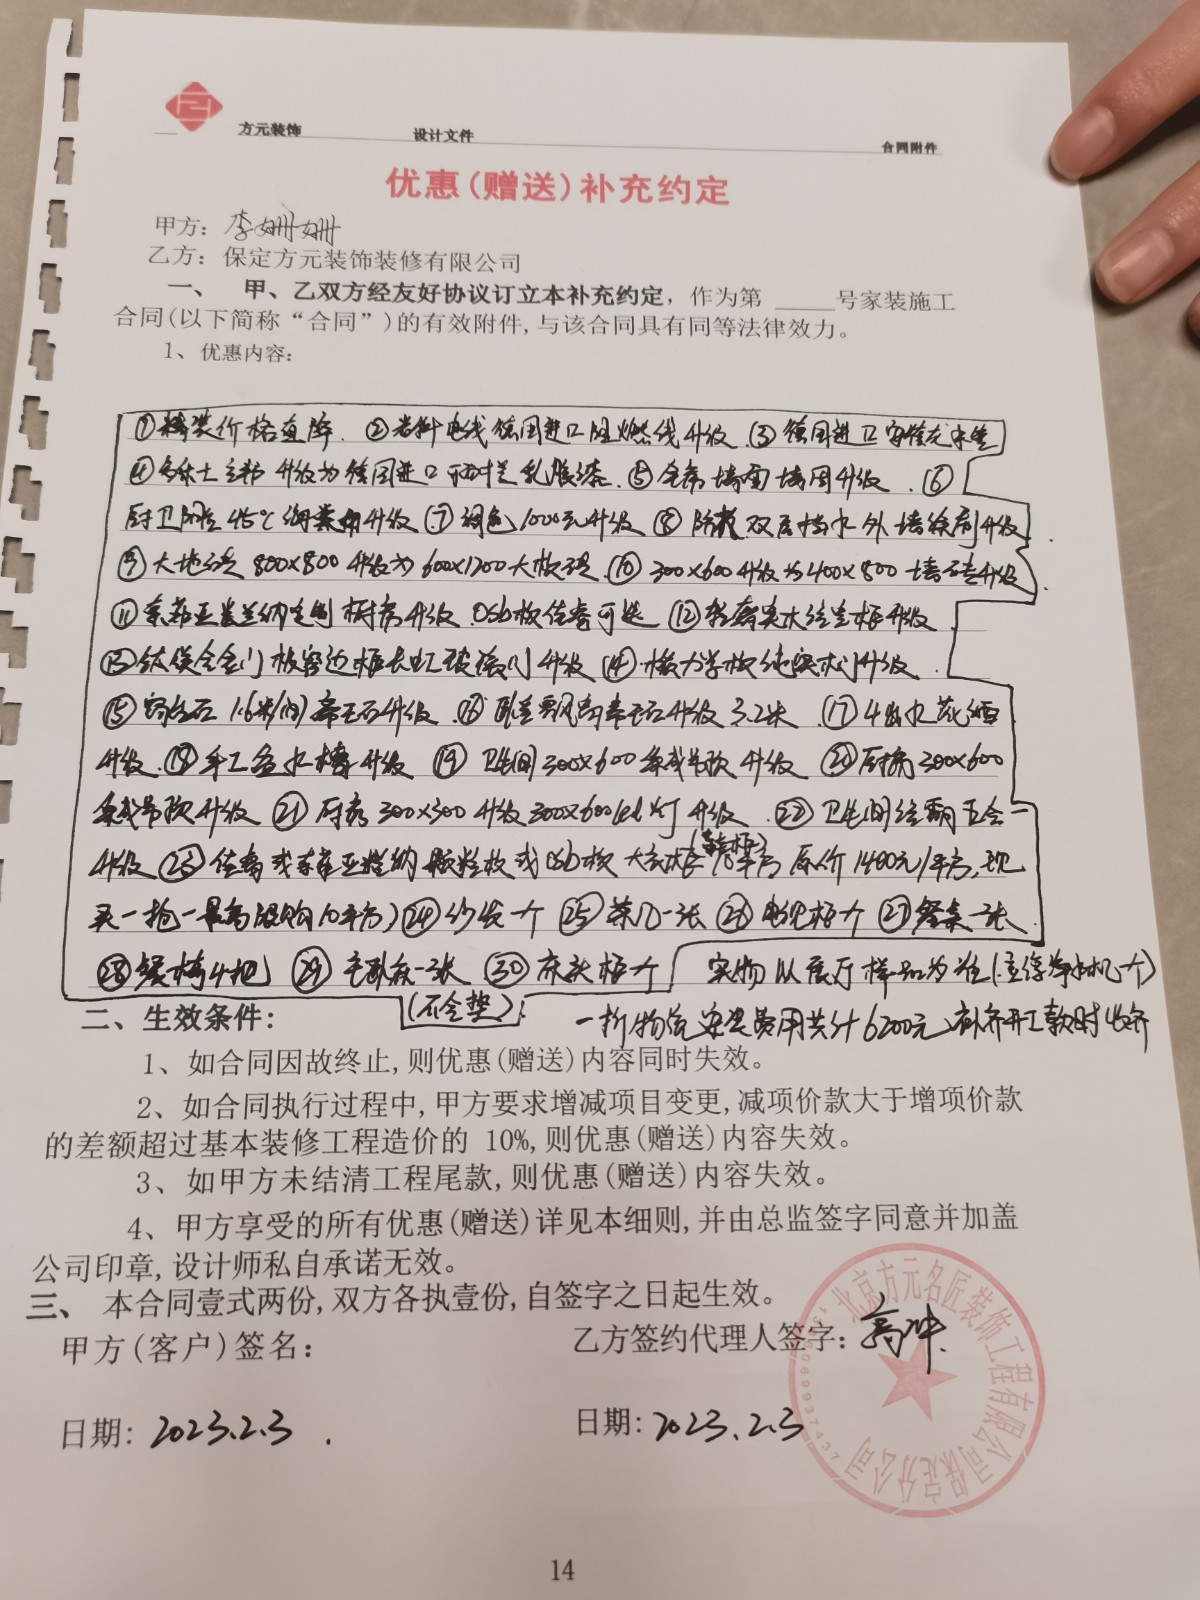 方元装饰 设计文件 合同附件
优惠(赠送)补充约定
甲方: 李姗姗
乙方: 保定方元装饰装修有限公司
一、 甲、乙双方经友好协议订立本补充约定, 作为第 号家装施工
合同(以下简称“合同”)的有效附件, 与该合同具有同等法律效力。
1、优惠内容:
① 价格直降. ② 电线德国进口阻燃线升级 ③ 德国进口
④ 升级为德国进口 乳胶漆. ⑤ 全房墙面 升级. ⑥
厨卫 45℃ 升级 ⑦ 调色1000元升级 ⑧ 双层 外墙涂刷升级
⑨ 大地砖 800x800升级为600x1200大板砖. ⑩ 300x600升级为400x800墙砖升级
⑪ 索菲亚 定制橱柜升级. Osb板 可选 ⑫ 实木 柜升级.
⑬ 钛镁合金门 边框长虹玻璃门升级 ⑭ 纯实木门升级.
⑮ 石1.6米/间 升级. ⑯ 卧室飘窗 石升级3.2米. ⑰ 4出水花洒
升级. ⑱ 手工盆水槽升级 ⑲ 卫生间300x600集成吊顶升级 ⑳ 厨房300x600
集成吊顶升级 ㉑ 厨房300x300升级300x600led灯升级. ㉒ 卫生间 五金
升级 ㉓ 或 颗粒板或Osb板 大衣柜 10平方 原价1480元/平方, 现
买一抢一最高限购10平方) ㉔ 沙发一个 ㉕ 茶几一张 ㉖ 电视柜一个 ㉗ 餐桌一张
㉘ 餐椅4把 ㉙ 主卧床一张 ㉚ 床头柜一个 实物以展厅样品为准 机一个)
(不含垫) 安装费用共计6200元 开工款时
二、生效条件:
1、如合同因故终止, 则优惠(赠送)内容同时失效。
2、如合同执行过程中, 甲方要求增减项目变更, 减项价款大于增项价款
的差额超过基本装修工程造价的 10%, 则优惠(赠送)内容失效。
3、如甲方未结清工程尾款, 则优惠(赠送)内容失效。
4、甲方享受的所有优惠(赠送)详见本细则, 并由总监签字同意并加盖
公司印章, 设计师私自承诺无效。
三、 本合同壹式两份, 双方各执壹份, 自签字之日起生效。
甲方(客户)签名: 乙方签约代理人签字: 高冲
日期: 2023.2.3. 日期: 2023.2.3
北京方元名匠装饰工程有限公司保定分公司
14